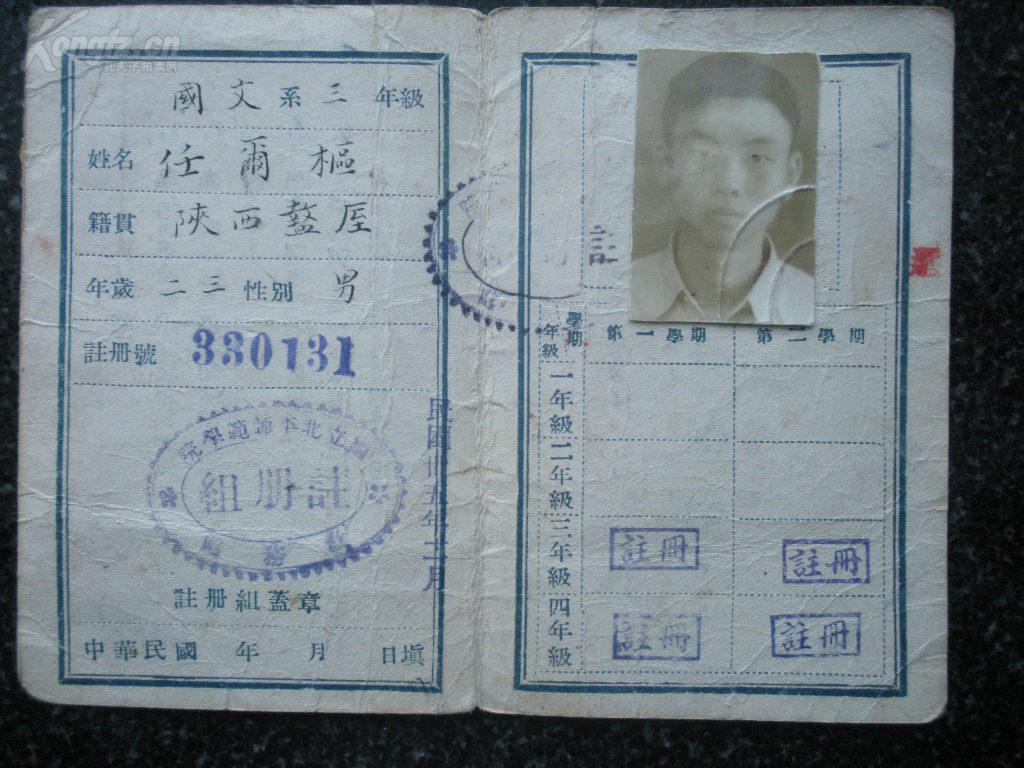 Kongfz.cn
國文系三年級
姓名 任爾樞
籍貫 陝西盩厔
年歲 二三 性別 男
註册號 330131
國立北平師範學院
註册組
教務處
民國卅五年二月
註册組蓋章
中華民國 年 月 日塡
註
學期
年級
第一學期 第二學期
一年級
二年級
三年級 註冊 註冊
四年級 註冊 註冊